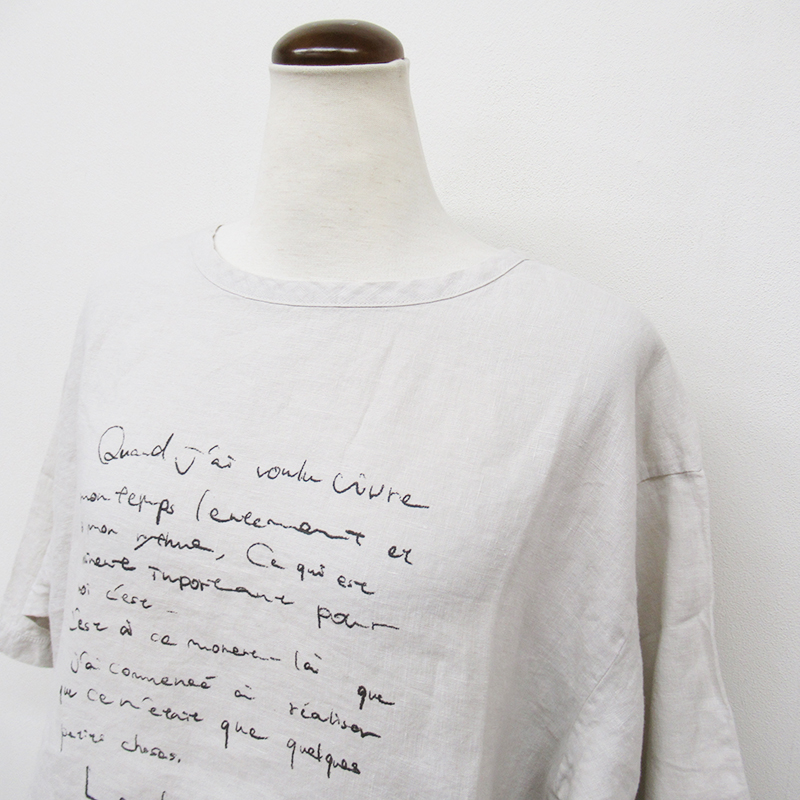 Quand j'ai voulu vivre
mon temps lentement et
mon rythme, Ce qui est
important pour
c'est
C'est à ce moment là que
j'ai commencé à réaliser
que ce n'était que quelques
petites choses.